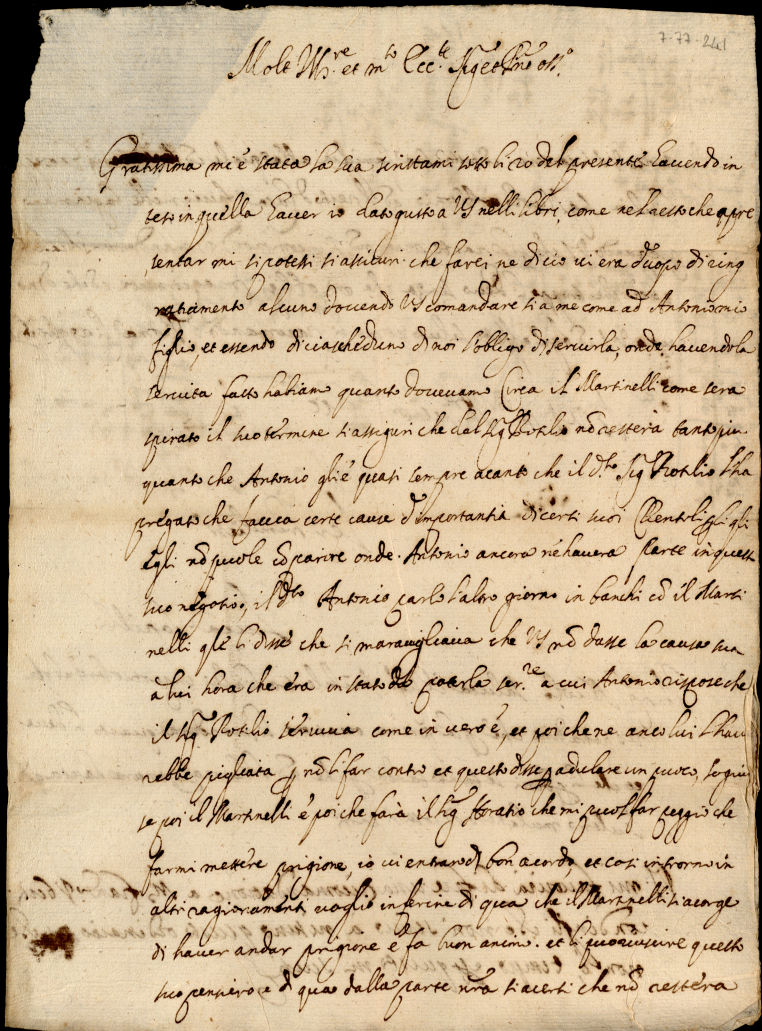 7-77-241
Molt Ill.re et m.to Ecc.te Sig.
Gratissima mi è stata la sua scrittami sotto li 20 del presente havendo in
teso in quella haver io dato gusto a VS nelli libri, come nel resto che apre
sentar mi si potessi s'assicuri che farei ne di cio vi era d'uopo di ring
ratiamento alcuno dovendo VS comandare si a me come ad Antonio mio
figlio, et essendo di ciascheduno di noi l'obligo di servirla, onde havendola
servita fatto habiamo quanto dovevamo Circa il Martinelli come sera
spirato il suo termine s'assiguri che dal Sig. Rotilio nō restera tanto piu
quanto che Antonio gli è quasi sempre acanto che il d.to Sig. Rotilio l'ha
pregato che faccia certe cause d'importantia di certi suoi
egli nō puole cōparire onde Antonio ancora ne havera parte in questo
suo negotio, il d.to Antonio parlo l'altro giorno in banchi cō il Marti
nelli li disse che si maravigliava che VS nō dasse la causa sua
a lui hora che era in stato da poterla ser.re a cui Antonio rispose che
il Sig. Rotilio serviva come in vero è, et poi che ne anco lui l'hav
rebbe pigliata p nō li far contro et questo disse p adulare un puoco, sogiun
se poi il Martinelli e poi che farà il Sig. Horatio che mi puol far peggio che
farmi mettere prigione, io vi entrarò d bon acordo, et cosi introrno in
altri ragionamenti voglio inferire di qua che il Martinelli s'acorge
di haver andar prigione e fa buon animo et li questo
suo pensiero e d qua dalla parte nr̄a s'acerti che nō restera